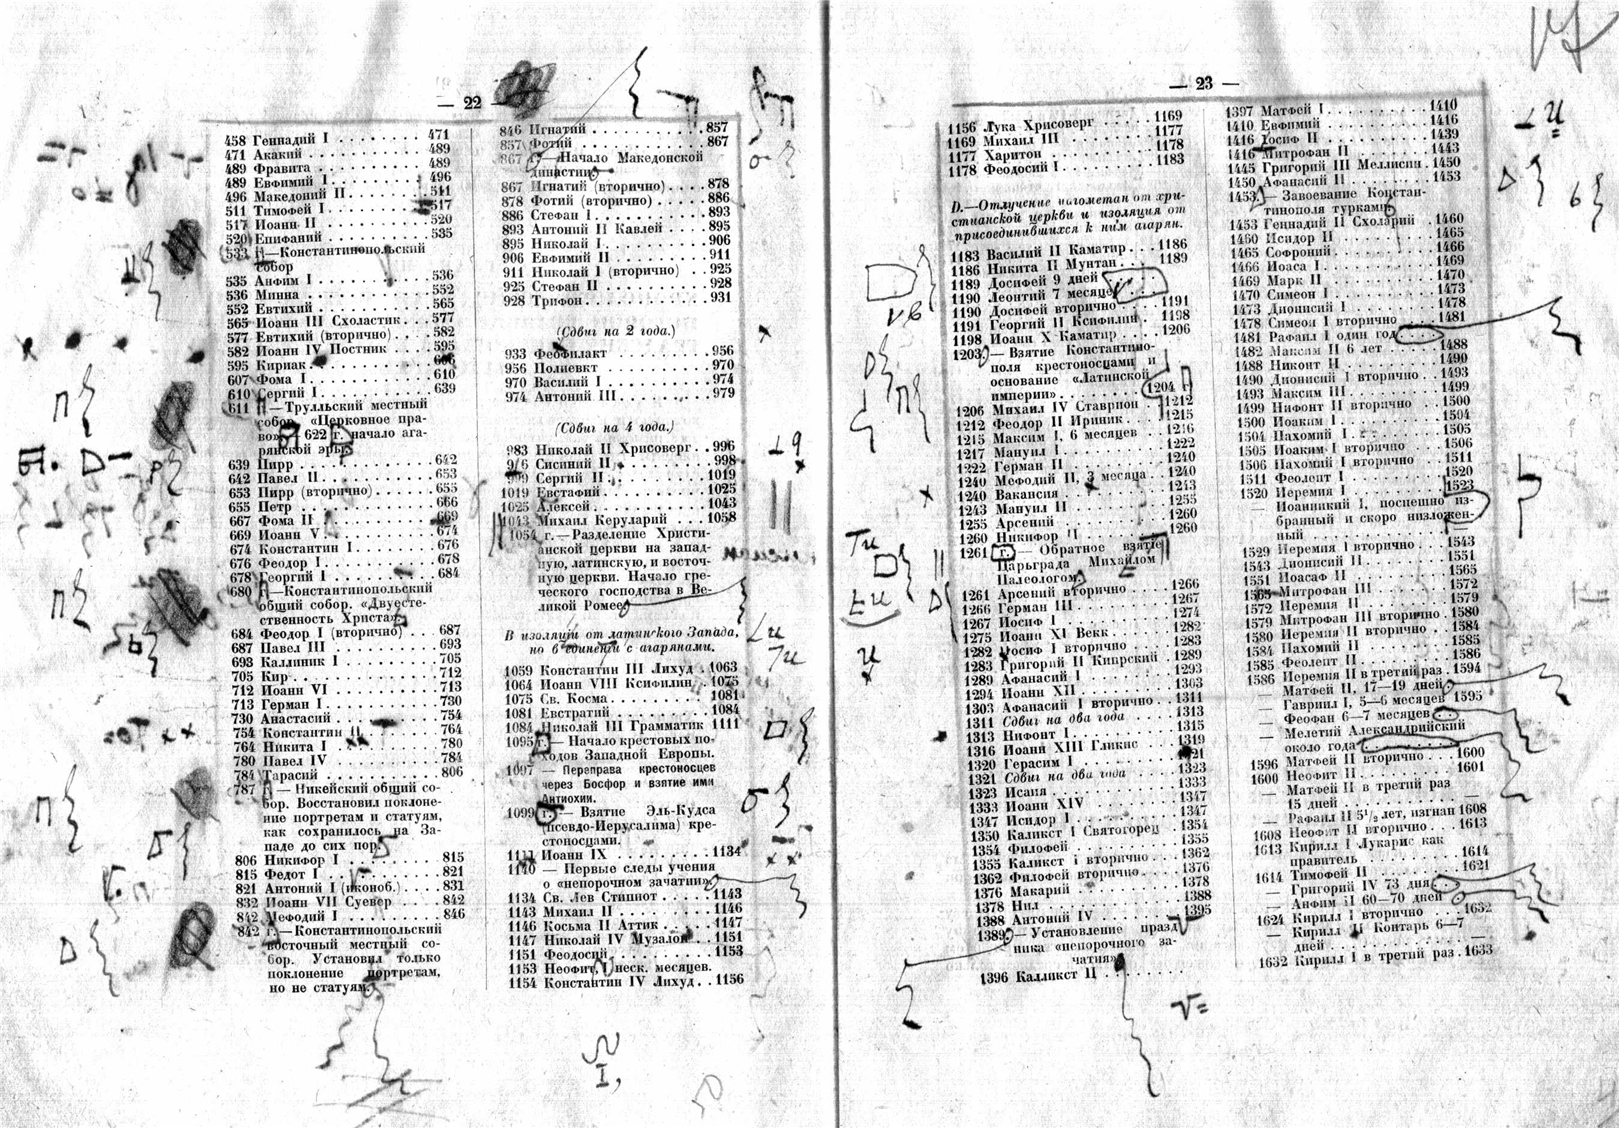 — 22 —
458 Геннадий I . . . . . . . . 471
471 Акакий . . . . . . . . . 489
489 Фравита . . . . . . . . . 489
489 Евфимий I . . . . . . . . 496
496 Македоний II . . . . . . . 511
511 Тимофей I . . . . . . . . 517
517 Иоанн II . . . . . . . . . 520
520 Епифаний . . . . . . . . 535
533 —Константинопольский
собор
535 Анфим I . . . . . . . . . 536
536 Минна . . . . . . . . . . 552
552 Евтихий . . . . . . . . . 565
565 Иоанн III Схоластик . . . 577
577 Евтихий (вторично) . . . . 582
582 Иоанн IV Постник . . . . 595
595 Кириак . . . . . . . . . 606
607 Фома I . . . . . . . . . . 610
610 Сергий I . . . . . . . . . 639
611 —Трулльский местный
собор. «Церковное пра-
во». 622 г. начало ага-
рянской эры.
639 Пирр . . . . . . . . . . 642
642 Павел II . . . . . . . . . 653
653 Пирр (вторично) . . . . . 655
655 Петр . . . . . . . . . . 666
667 Фома II . . . . . . . . . 669
669 Иоанн V . . . . . . . . . 674
674 Константин I . . . . . . . 676
676 Феодор I . . . . . . . . . 678
678 Георгий I . . . . . . . . 684
680 —Константинопольский
общий собор. «Двуесте-
ственность Христа».
684 Феодор I (вторично) . . . 687
687 Павел III . . . . . . . . 693
693 Каллиник I . . . . . . . 705
705 Кир . . . . . . . . . . . 712
712 Иоанн VI . . . . . . . . 713
713 Герман I . . . . . . . . . 730
730 Анастасий . . . . . . . . 754
754 Константин II . . . . . . 764
764 Никита I . . . . . . . . . 780
780 Павел IV . . . . . . . . 784
784 Тарасий . . . . . . . . . 806
787 — Никейский общий со-
бор. Восстановил поклоне-
ние портретам и статуям,
как сохранилось на За-
паде до сих пор.
806 Никифор I . . . . . . . . 815
815 Федот I . . . . . . . . . 821
821 Антоний I (иконоб.) . . . . 831
832 Иоанн VII Суевер . . . . 842
842 Мефодий I . . . . . . . . 846
842 г.—Константинопольский
восточный местный со-
бор. Установил только
поклонение портретам,
но не статуям.
846 Игнатий . . . . . . . . . 857
857 Фотий . . . . . . . . . . 867
867 г.—Начало Македонской
династии.
867 Игнатий (вторично) . . . . 878
878 Фотий (вторично) . . . . . 886
886 Стефан I . . . . . . . . . 893
893 Антоний II Кавлей . . . . 895
895 Николай I . . . . . . . . 906
906 Евфимий II . . . . . . . . 911
911 Николай I (вторично) . . 925
925 Стефан II . . . . . . . . 928
928 Трифон . . . . . . . . . . 931
(Сдвиг на 2 года.)
933 Феофилакт . . . . . . . . 956
956 Полиевкт . . . . . . . . 970
970 Василий I . . . . . . . . 974
974 Антоний III . . . . . . . . 979
(Сдвиг на 4 года.)
983 Николай II Хрисоверг . . 996
996 Сисиний II . . . . . . . . 998
999 Сергий II . . . . . . . . 1019
1019 Евстафий . . . . . . . . 1025
1025 Алексей . . . . . . . . . 1043
1043 Михаил Керуларий . . . 1058
1054 г.—Разделение Христи-
анской церкви на запад-
ную, латинскую, и восточ-
ную церкви. Начало гре-
ческого господства в Ве-
ликой Ромее.
В изоляции от латинского Запада,
но в единении с агарянами.
1059 Константин III Лихуд . 1063
1064 Иоанн VIII Ксифилин . . 1075
1075 Св. Косма . . . . . . . . 1081
1081 Евстратий . . . . . . . . 1084
1084 Николай III Грамматик 1111
1095 г.— Начало крестовых по-
ходов Западной Европы.
1097 — Переправа крестоносцев
через Босфор и взятие ими
Антиохии.
1099 г.— Взятие Эль-Кудса
(псевдо-Иерусалима) кре-
стоносцами.
1111 Иоанн IX . . . . . . . . 1134
1140 — Первые следы учения
о «непорочном зачатии».
1134 Св. Лев Стиппот . . . . 1143
1143 Михаил II . . . . . . . . 1146
1146 Косьма II Аттик . . . . . 1147
1147 Николай IV Музалон . . 1151
1151 Феодосий . . . . . . . . 1153
1153 Неофит, неск. месяцев.
1154 Константин IV Лихуд . . 1156
17
— 23 —
1156 Лука Хрисоверг . . . . 1169
1169 Михаил III . . . . . . . 1177
1177 Харитон . . . . . . . . 1178
1178 Феодосий I . . . . . . . 1183
D.—Отлучение магометан от хри-
стианской церкви и изоляция от
присоединившихся к ним агарян.
1183 Василий II Каматир . . . 1186
1186 Никита II Мунтан . . . 1189
1189 Досифей 9 дней
1190 Леонтий 7 месяцев
1190 Досифей вторично . . . 1191
1191 Георгий II Ксифилин . . 1198
1198 Иоанн X Каматир . . . . 1206
1203 — Взятие Константино-
поля крестоносцами и
основание «Латинской
империи» . . . . . . . 1204
1206 Михаил IV Ставрион . . 1212
1212 Феодор II Ириник . . . 1215
1215 Максим I, 6 месяцев . . 1216
1217 Мануил I . . . . . . . . 1222
1222 Герман II . . . . . . . . 1240
1240 Мефодий II, 3 месяца . . 1240
1240 Вакансия . . . . . . . . 1243
1243 Мануил II . . . . . . . . 1255
1255 Арсений . . . . . . . . . 1260
1260 Никифор II . . . . . . . 1260
1261 г. — Обратное взятие
Царьграда Михаилом
Палеологом.
1261 Арсений вторично . . . . 1266
1266 Герман III . . . . . . . . 1267
1267 Иосиф I . . . . . . . . . 1274
1275 Иоанн XI Векк . . . . . 1282
1282 Иосиф I вторично . . . . 1283
1283 Григорий II Кипрский . 1289
1289 Афанасий I . . . . . . . 1293
1294 Иоанн XII . . . . . . . . 1303
1303 Афанасий I вторично . . 1311
1311 Сдвиг на два года . . . . 1313
1313 Нифонт I . . . . . . . . 1315
1316 Иоанн XIII Гликис . . . 1319
1320 Герасим I . . . . . . . . 1321
1321 Сдвиг на два года . . . 1323
1323 Исаия . . . . . . . . . . 1333
1333 Иоанн XIV . . . . . . . 1347
1347 Исидор I . . . . . . . . 1347
1350 Каликст I Святогорец . . 1354
1354 Филофей . . . . . . . . 1355
1355 Каликст I вторично . . . 1362
1362 Филофей вторично . . . 1376
1376 Макарий . . . . . . . . 1378
1378 Нил . . . . . . . . . . . 1388
1388 Антоний IV . . . . . . . 1395
1389 — Установление празд-
ника «непорочного за-
чатия»
1396 Каллист II . . . . . . . .
1397 Матфей I . . . . . . . . 1410
1410 Евфимий . . . . . . . . 1416
1416 Иосиф II . . . . . . . . 1439
1416 Митрофан II . . . . . . 1443
1445 Григорий III Меллисин . 1450
1450 Афанасий II . . . . . . . 1453
1453 — Завоевание Констан-
тинополя турками.
1453 Геннадий II Схоларий . 1460
1460 Исидор II . . . . . . . . 1465
1465 Софроний . . . . . . . . 1466
1466 Иоаса I . . . . . . . . . 1469
1469 Марк II . . . . . . . . . 1470
1470 Симеон I . . . . . . . . 1473
1473 Дионисий I . . . . . . . 1478
1478 Симеон I вторично . . . 1481
1481 Рафаил I один год
1482 Максим II 6 лет . . . . . 1488
1488 Никонт II . . . . . . . . 1490
1490 Дионисий I вторично . . 1493
1493 Максим III . . . . . . . 1499
1499 Нифонт II вторично . . . 1500
1500 Иоаким I . . . . . . . . 1504
1504 Пахомий I . . . . . . . . 1505
1505 Иоаким I вторично . . . 1506
1506 Пахомий I вторично . . . 1511
1511 Феолепт I . . . . . . . . 1520
1520 Иеремия I . . . . . . . . 1523
— Иоанникий I, поспешно из-
бранный и скоро низложен-
ный . . . . . . . . . . —
1529 Иеремия I вторично . . . 1543
1543 Дионисий II . . . . . . . 1551
1551 Иоасаф II . . . . . . . . 1565
1565 Митрофан III . . . . . . 1572
1572 Иеремия II . . . . . . . 1579
1579 Митрофан III вторично . 1580
1580 Иеремия II вторично . . 1584
1584 Пахомий II . . . . . . . 1585
1585 Феолепт II . . . . . . . . 1586
1586 Иеремия II в третий раз . 1594
— Матфей II, 17—19 дней
— Гавриил I, 5—6 месяцев 1595
— Феофан 6—7 месяцев
— Мелетий Александрийский
около года
1596 Матфей II вторично . . . 1600
1600 Неофит II . . . . . . . . 1601
— Матфей II в третий раз
15 дней . . . . . . . . —
— Рафаил II 5¹/₂ лет, изгнан 1608
1608 Неофит II вторично . . . 1613
1613 Кирилл I Лукарис как
правитель . . . . . . . 1614
1614 Тимофей II . . . . . . . 1621
— Григорий IV 73 дня
— Анфим II 60—70 дней
1624 Кирилл I вторично . . . . 1632
— Кирилл II Контарь 6—7
дней . . . . . . . . . . —
1632 Кирилл I в третий раз . 1633